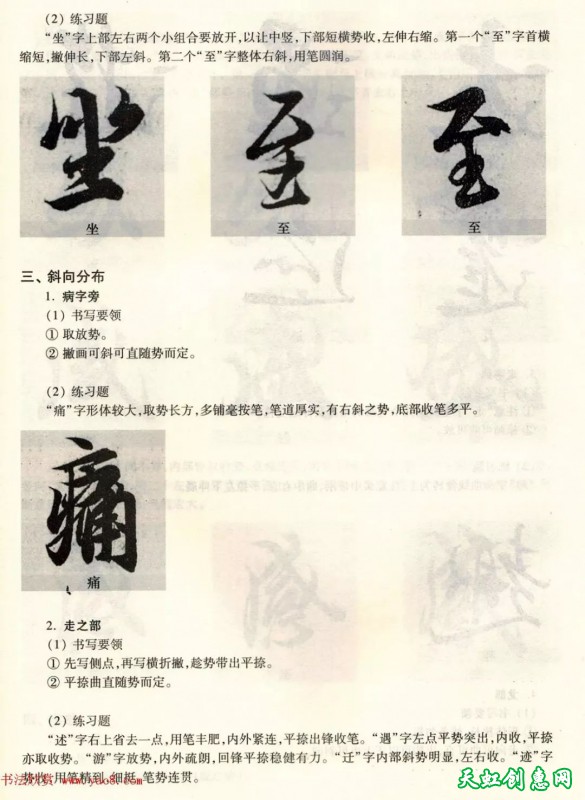 (2) 练习题
“坐”字上部左右两个小组合要放开,以让中竖,下部短横势收,左伸右缩。第一个“至”字首横
缩短,撇伸长,下部左斜。第二个“至”字整体右斜,用笔圆润。
坐 至 至
坐 至 至
三、斜向分布
1. 病字旁
(1) 书写要领
① 取放势。
② 撇画可斜可直随势而定。
(2) 练习题
“痛”字形体较大,取势长方,多铺毫按笔,笔道厚实,有右斜之势,底部收笔多平。
痛
痛
2. 走之部
(1) 书写要领
① 先写侧点,再写横折撇,趁势带出平捺。
② 平捺曲直随势而定。
(2) 练习题
“述”字右上省去一点,用笔丰肥,内外紧连,平捺出锋收笔。“遇”字左点平势突出,内收,平捺
亦取收势。“游”字放势,内外疏朗,回锋平捺稳健有力。“迁”字内部斜势明显,左右收。“迹”字
势收,用笔精到,细挺,笔势连贯。
书法欣赏 www.yac8.com
天虹创意网